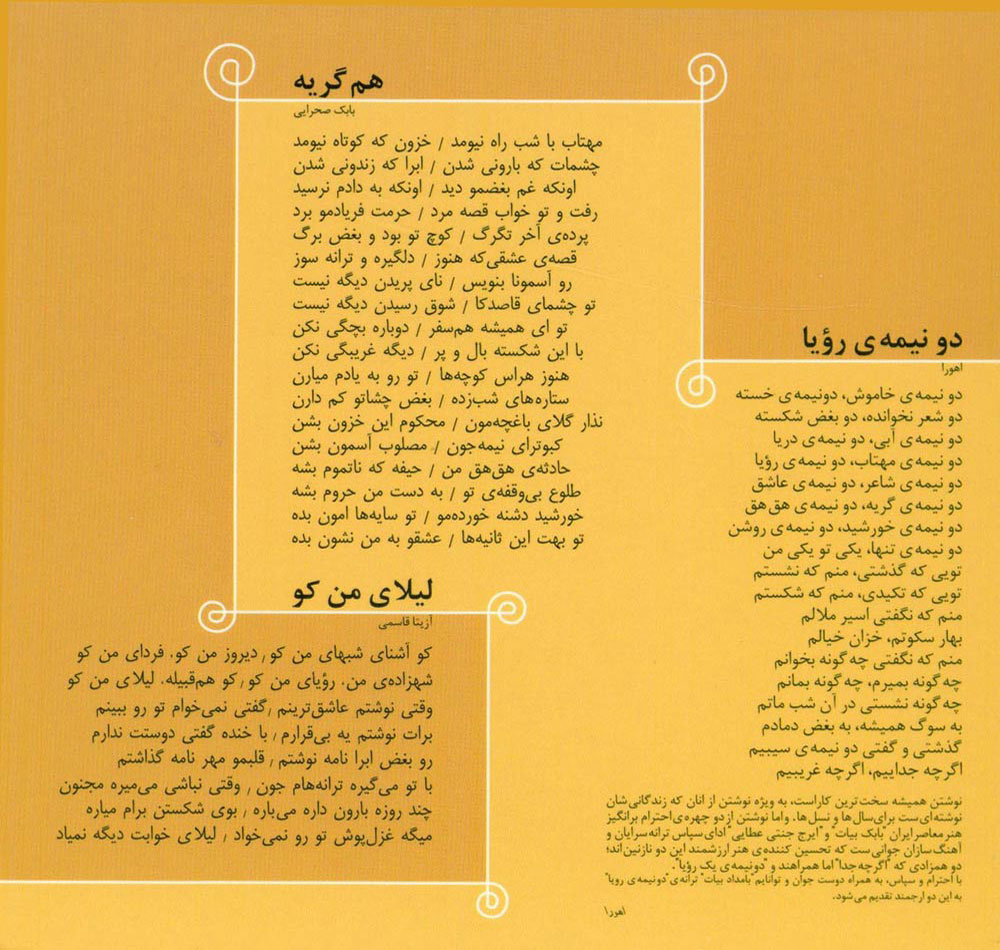 هم گریه
بابک صحرایی
مهتاب با شب راه نیومد / خزون که کوتاه نیومد
چشمات که بارونی شدن / ابرا که زندونی شدن
اونکه غم بغضمو دید / اونکه به دادم نرسید
رفت و تو خواب قصه مرد / حرمت فریادمو برد
پرده‌ی آخر تگرگ / کوچ تو بود و بغض برگ
قصه‌ی عشقی‌که هنوز / دلگیره و ترانه سوز
رو آسمونا بنویس / نای پریدن دیگه نیست
تو چشمای قاصدکا / شوق رسیدن دیگه نیست
تو ای همیشه هم‌سفر / دوباره بچگی نکن
با این شکسته بال و پر / دیگه غریبگی نکن
هنوز هراس کوچه‌ها / تو رو به یادم میارن
ستاره‌های شب‌زده / بغض چشاتو کم دارن
نذار گلای باغچه‌مون / محکوم این خزون بشن
کبوترای نیمه‌جون / مصلوب آسمون بشن
حادثه‌ی هق‌هق من / حیفه که ناتموم بشه
طلوع بی‌وقفه‌ی تو / به دست من حروم بشه
خورشید دشنه خورده‌مو / تو سایه‌ها امون بده
تو بهت این ثانیه‌ها / عشقو به من نشون بده
دو نیمه‌ی رؤیا
اهورا
دو نیمه‌ی خاموش، دونیمه‌ی خسته
دو شعر نخوانده، دو بغض شکسته
دو نیمه‌ی آبی، دو نیمه‌ی دریا
دو نیمه‌ی مهتاب، دو نیمه‌ی رؤیا
دو نیمه‌ی شاعر، دو نیمه‌ی عاشق
دو نیمه‌ی گریه، دو نیمه‌ی هق‌هق
دو نیمه‌ی خورشید، دو نیمه‌ی روشن
دو نیمه‌ی تنها، یکی تو یکی من
تویی که گذشتی، منم که نشستم
تویی که تکیدی، منم که شکستم
منم که نگفتی اسیر ملالم
بهار سکوتم، خزان خیالم
منم که نگفتی چه گونه بخوانم
چه گونه بمیرم، چه گونه بمانم
چه گونه نشستی در آن شب ماتم
به سوگ همیشه، به بغض دمادم
گذشتی و گفتی دو نیمه‌ی سیبیم
اگرچه جداییم، اگرچه غریبیم
نوشتن همیشه سخت‌ترین کاراست، به ویژه نوشتن از آنان که زندگانی‌شان
نوشته‌ای‌ست برای‌سال‌ها و نسل‌ها. واما نوشتن از دو چهره‌ی احترام برانگیز
هنر معاصر ایران "بابک بیات" و "ایرج جنتی عطایی" ادای سپاس ترانه‌سرایان و
آهنگ‌سازان جوانی‌ست که تحسین کننده‌ی هنر ارزشمند این دو نازنین‌اند؛
دو همزادی که "اگرچه جدا" اما همراهند و "دونیمه‌ی یک رؤیا".
با احترام و سپاس، به همراه دوست جوان و توانایم "بامداد بیات" ترانه‌ی "دونیمه‌ی رویا"
به این دو ارجمند تقدیم می‌شود.
اهورا
لیلای من کو
آزیتا قاسمی
کو آشنای شبهای من کو / دیروز من کو. فردای من کو
شهزاده‌ی من. رؤیای من کو / کو هم‌قبیله. لیلای من کو
وقتی نوشتم عاشق‌ترینم / گفتی نمی‌خوام تو رو ببینم
برات نوشتم یه بی‌قرارم / با خنده گفتی دوستت ندارم
رو بغض ابرا نامه نوشتم / قلبمو مهر نامه گذاشتم
با تو می‌گیره ترانه‌هام جون / وقتی نباشی می‌میره مجنون
چند روزه بارون داره می‌باره / بوی شکستن برام میاره
میگه غزل‌پوش تو رو نمی‌خواد / لیلای خوابت دیگه نمیاد